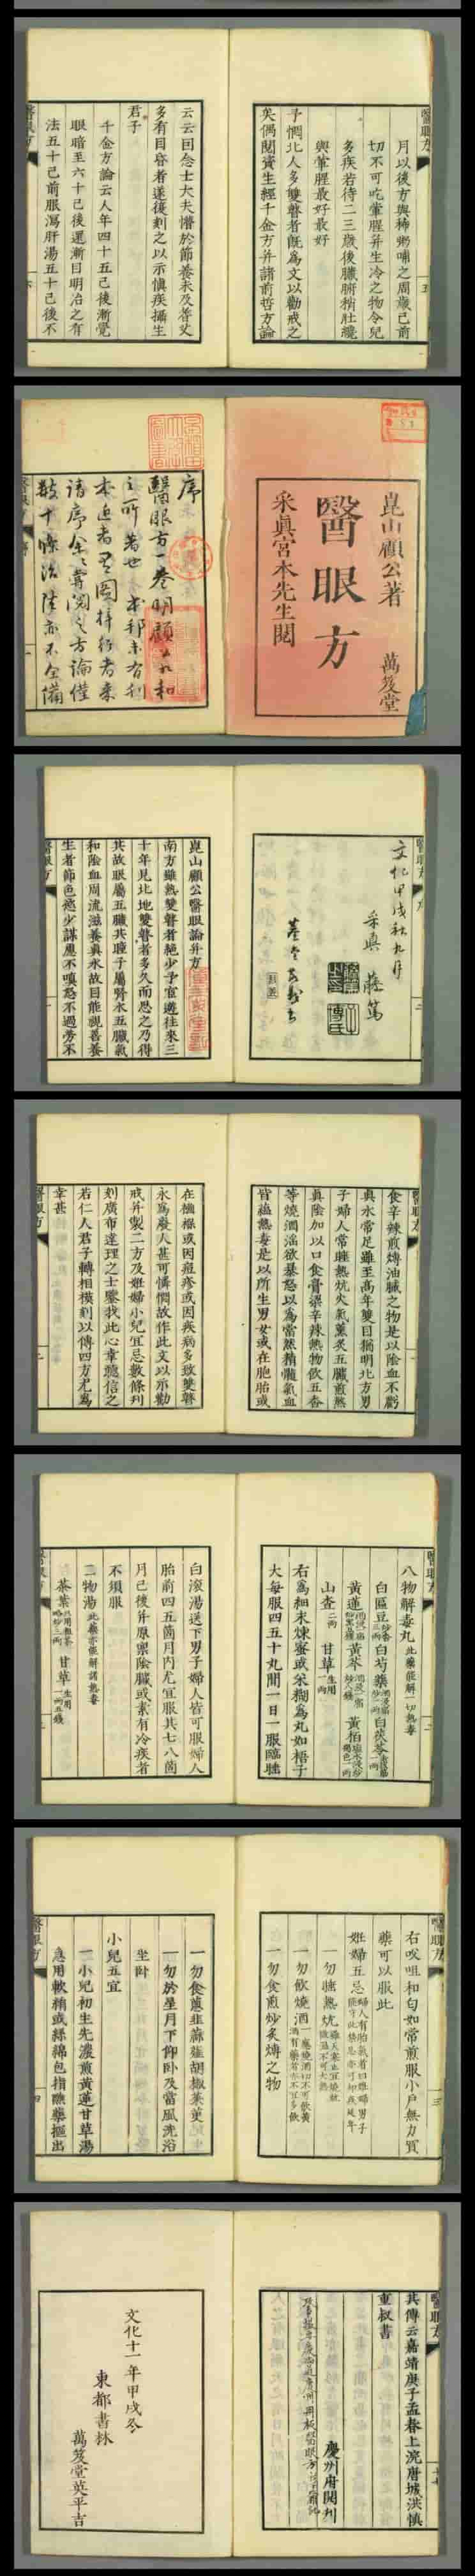 月以後方與稀粥哺之周歲已前
切不可吃葷腥并生冷之物令兒
多疾若待二三歲後臟腑稍壯纔
與葷腥最好最好
予憫北人多雙瞽者既為文以勸戒之
矣偶閱資生經千金方并諸前哲方論
云云因念士大夫懵於節養未及耆艾
多有目昏者遂復刻之以示慎疾攝生
君子
千金方論云人年四十五已後漸覺
眼暗至六十已後還漸目明治之有
法五十已前服瀉肝湯五十已後不
崑山顧公著
萬笈堂
醫眼方
采真宮本先生閱
序
醫眼方一卷明顧公
之所著也本邦未有刊
本近者
請序余
數十條治法亦不全備
文化甲戌秋九月
采真
崑山顧公醫眼論并方
南方雖熱雙瞽者絶少予宦遊往來三
十年見北地雙瞽者多久而思之乃得
其故眼屬五臟其瞳子屬腎水五臟氣
和陰血周流滋養真水故目能視善養
生者節色慾少謀慮不嗔怒不過勞不
食辛辣煎煿油膩之物是以陰血不虧
真水常足雖至高年雙目猶明北方男
子婦人常睡熱炕火氣薰炙五臟煎熬
真陰加以口食膏粱辛辣熱物飲五香
等燒酒淫欲暴怒以為當然精髓氣血
皆蘊熱毒是以所生男女或在胞胎或
在襁褓或因瘡疹或因疾病多致雙瞽
永為廢人甚可憐憫故作此文以示勸
戒并製二方及姙婦小兒宜忌數條刋
刻廣布達理之士鑒我此心幸聽信之
若仁人君子轉相摸刻以傳四方尤為
幸甚
八物解毒丸 此藥能解一切熱毒
白匾豆
白芍藥
白茯苓
黃蓮
黃芩
黃栢
山查 二兩
甘草 生用一兩
右為細末煉蜜或米糊為丸如梧子
大每服四五十丸間一日一服臨睡
白滾湯送下男子婦人皆可服婦人
胎前四五箇月內尤宜服其七八箇
月已後并原禀陰臟或素有冷疾者
不須服
二物湯 此藥亦能解諸熱毒
茶葉
甘草 生用一兩五錢
右㕮咀和勻如常煎服小戶無力買
藥可以服此
姙婦五忌
一勿睡熱炕
一勿飲燒酒
一勿食煎炒炙煿之物
一勿食葱韮蒜薤胡椒茱茰
一勿於星月下仰卧及當風洗浴
坐卧
小兒五宜
一小兒初生先濃煎黃蓮甘草湯
急用軟稍或絲綿包指蘸藥摳出
其傳云嘉靖庚子孟春上浣唐城洪慎
重叔書
慶州府開刋
文化十一年甲戌冬
東都書林
萬笈堂英平吉